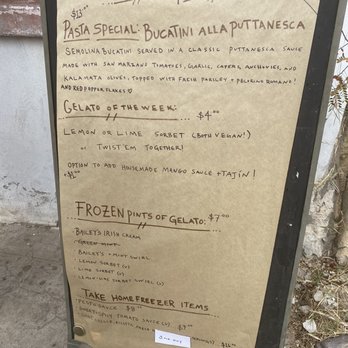 $13.00
PASTA SPECIAL: BUCATINI ALLA PUTTANESCA
SEMOLINA BUCATINI SERVED IN A CLASSIC PUTTANESCA SAUCE
MADE WITH SAN MARZANO TOMATOES, GARLIC, CAPERS, ANCHOVIES, AND
KALAMATA OLIVES, TOPPED WITH FRESH PARSLEY + PECORINO ROMANO!
AND RED PEPPER FLAKES
GELATO OF THE WEEK: $4.00
LEMON OR LIME SORBET (BOTH VEGAN!)
OR TWIST 'EM TOGETHER!
OPTION TO ADD HOUSEMADE MANGO SAUCE + TAJÍN!
+$1.00
FROZEN PINTS OF GELATO: $7.00
- BAILEY'S IRISH CREAM
- GREEN MINT
- BAILEY'S + MINT SWIRL
- LEMON SORBET (V)
- LIME SORBET (V)
- LEMON/LIME SORBET SWIRL (V)
TAKE HOME FREEZER ITEMS
- PESTO SAUCE $8.00
TOMATO SAUCE (V) $7.00